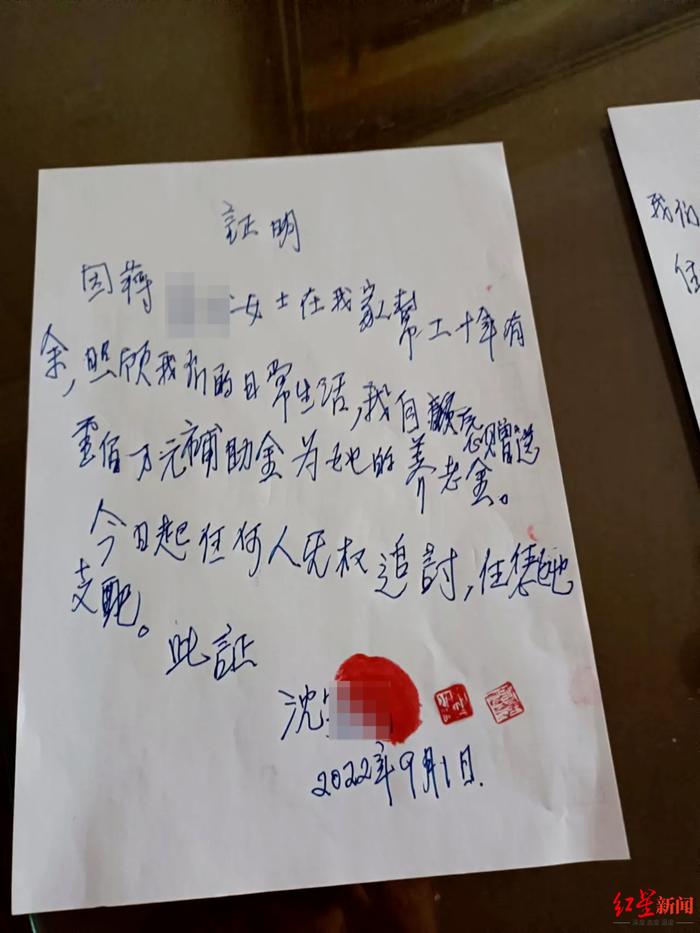 証明
因蒋 女士在我家帮工十年有
余，照顾我们的日常生活，我自願意赠送
壹佰万元補助金为她的养老金。
今日起任何人无权追討，任凭她
支配。
此証
沈
2022年9月1日.
我们
红星新闻
深度 态度 温度